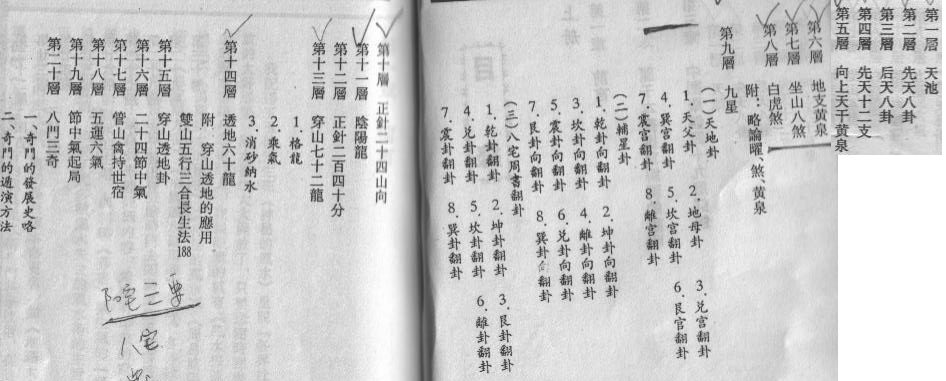 第一层　天池
第二層　先天八卦
第三層　后天八卦
第四層　先天十二支
第五層　向上天干黄泉
第六層　地支黄泉
第七層　坐山八煞
第八層　白虎煞
附：略論曜、煞、黄泉
第九層　九星
(一)天地卦
1．天父卦　2．地母卦　3．兑宫翻卦
4．巽宫翻卦　5．坎宫翻卦　6．艮宫翻卦
7．震宫翻卦　8．離宫翻卦
(二)輔星卦
1．乾卦向翻卦　2．坤卦向翻卦
3．坎卦向翻卦　4．離卦向翻卦
5．震卦向翻卦　6．兑卦向翻卦
7．艮卦向翻卦　8．巽卦向翻卦
(三)八宅周書翻卦
1．乾卦翻卦　2．坤卦翻卦　3．艮卦翻卦
4．兑卦翻卦　5．坎卦翻卦　6．離卦翻卦
7．震卦翻卦　8．巽卦翻卦
第十層　正針二十四山向
第十一層　陰陽龍
第十二層　正針二百四十分
第十三層　穿山七十二龍
1．格龍
2．乘氣
3．消砂納水
第十四層　透地六十龍
附　穿山透地的應用
雙山五行三合長生法188
第十五層　穿山透地卦
第十六層　二十四節中氣
第十七層　管山禽持世宿
第十八層　五運六氣
第十九層　節中氣起局
第二十層　八門三奇
一、奇門的發展史略
二、奇門的遁演方法
阳宅三要
八宅